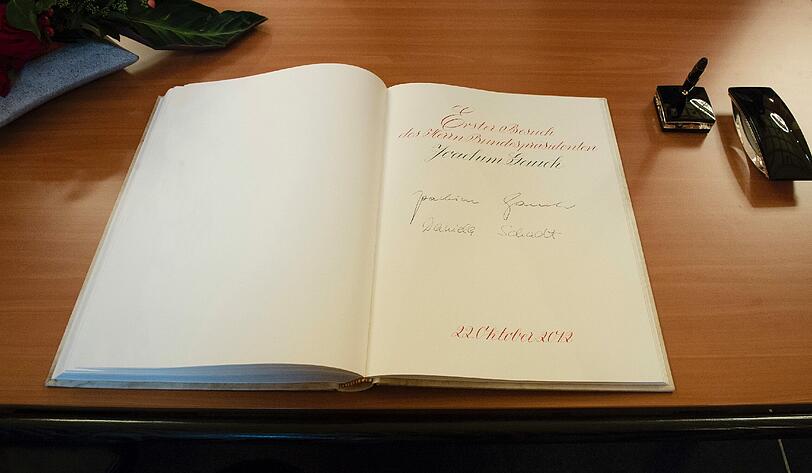 Erster Besuch
des Herrn Bundespräsidenten
Joachim Gauck
Joachim Gauck
Daniela Schadt
22. Oktober 2012